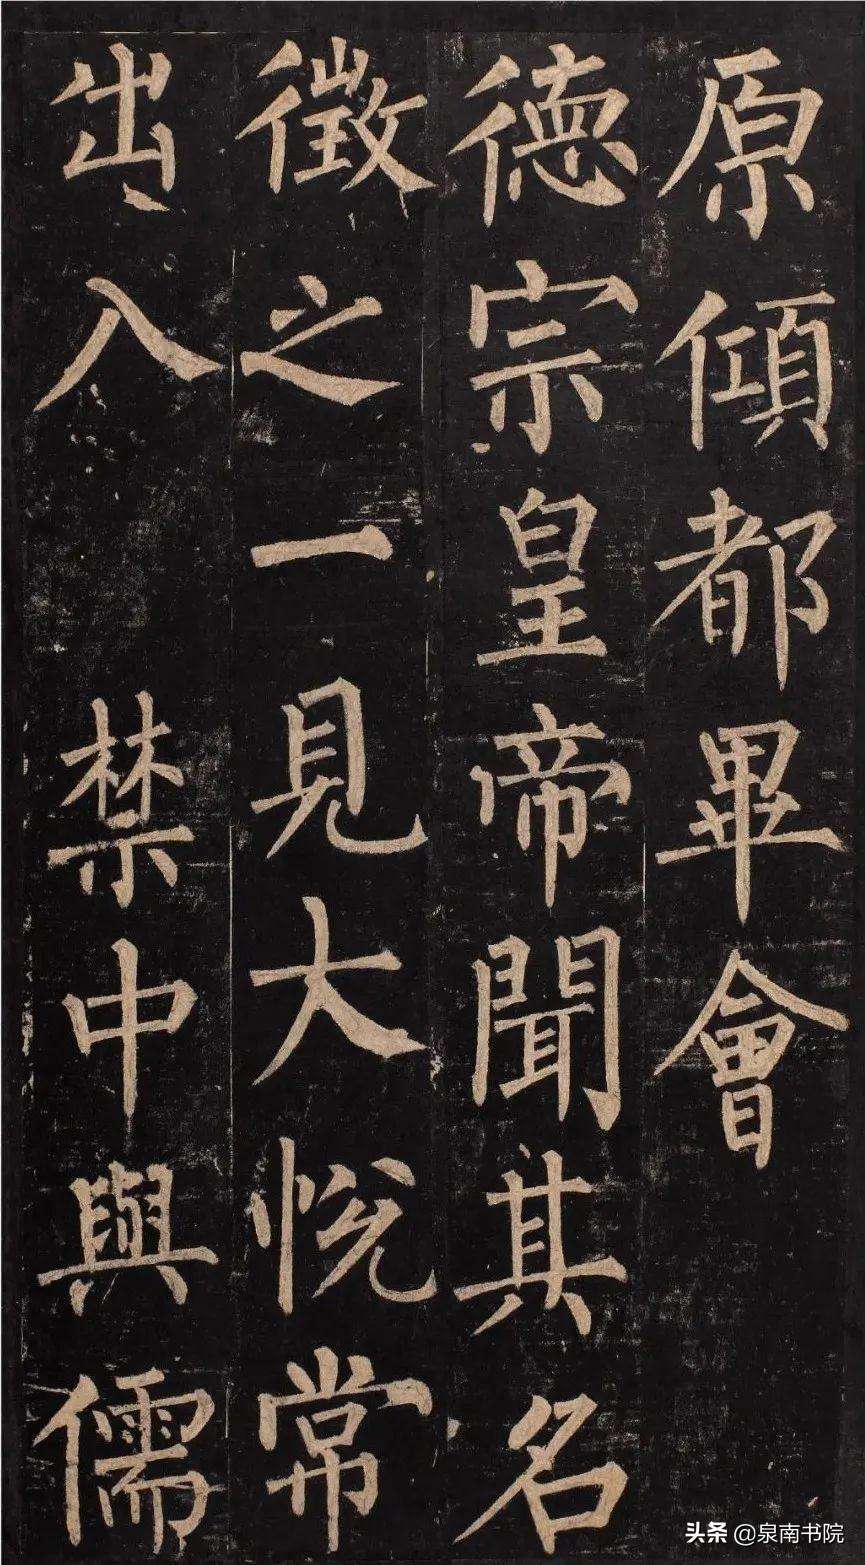 原傾都畢會
德宗皇帝聞其名
徵之一見大悅常
出入 禁中與儒
头条 @泉南书院